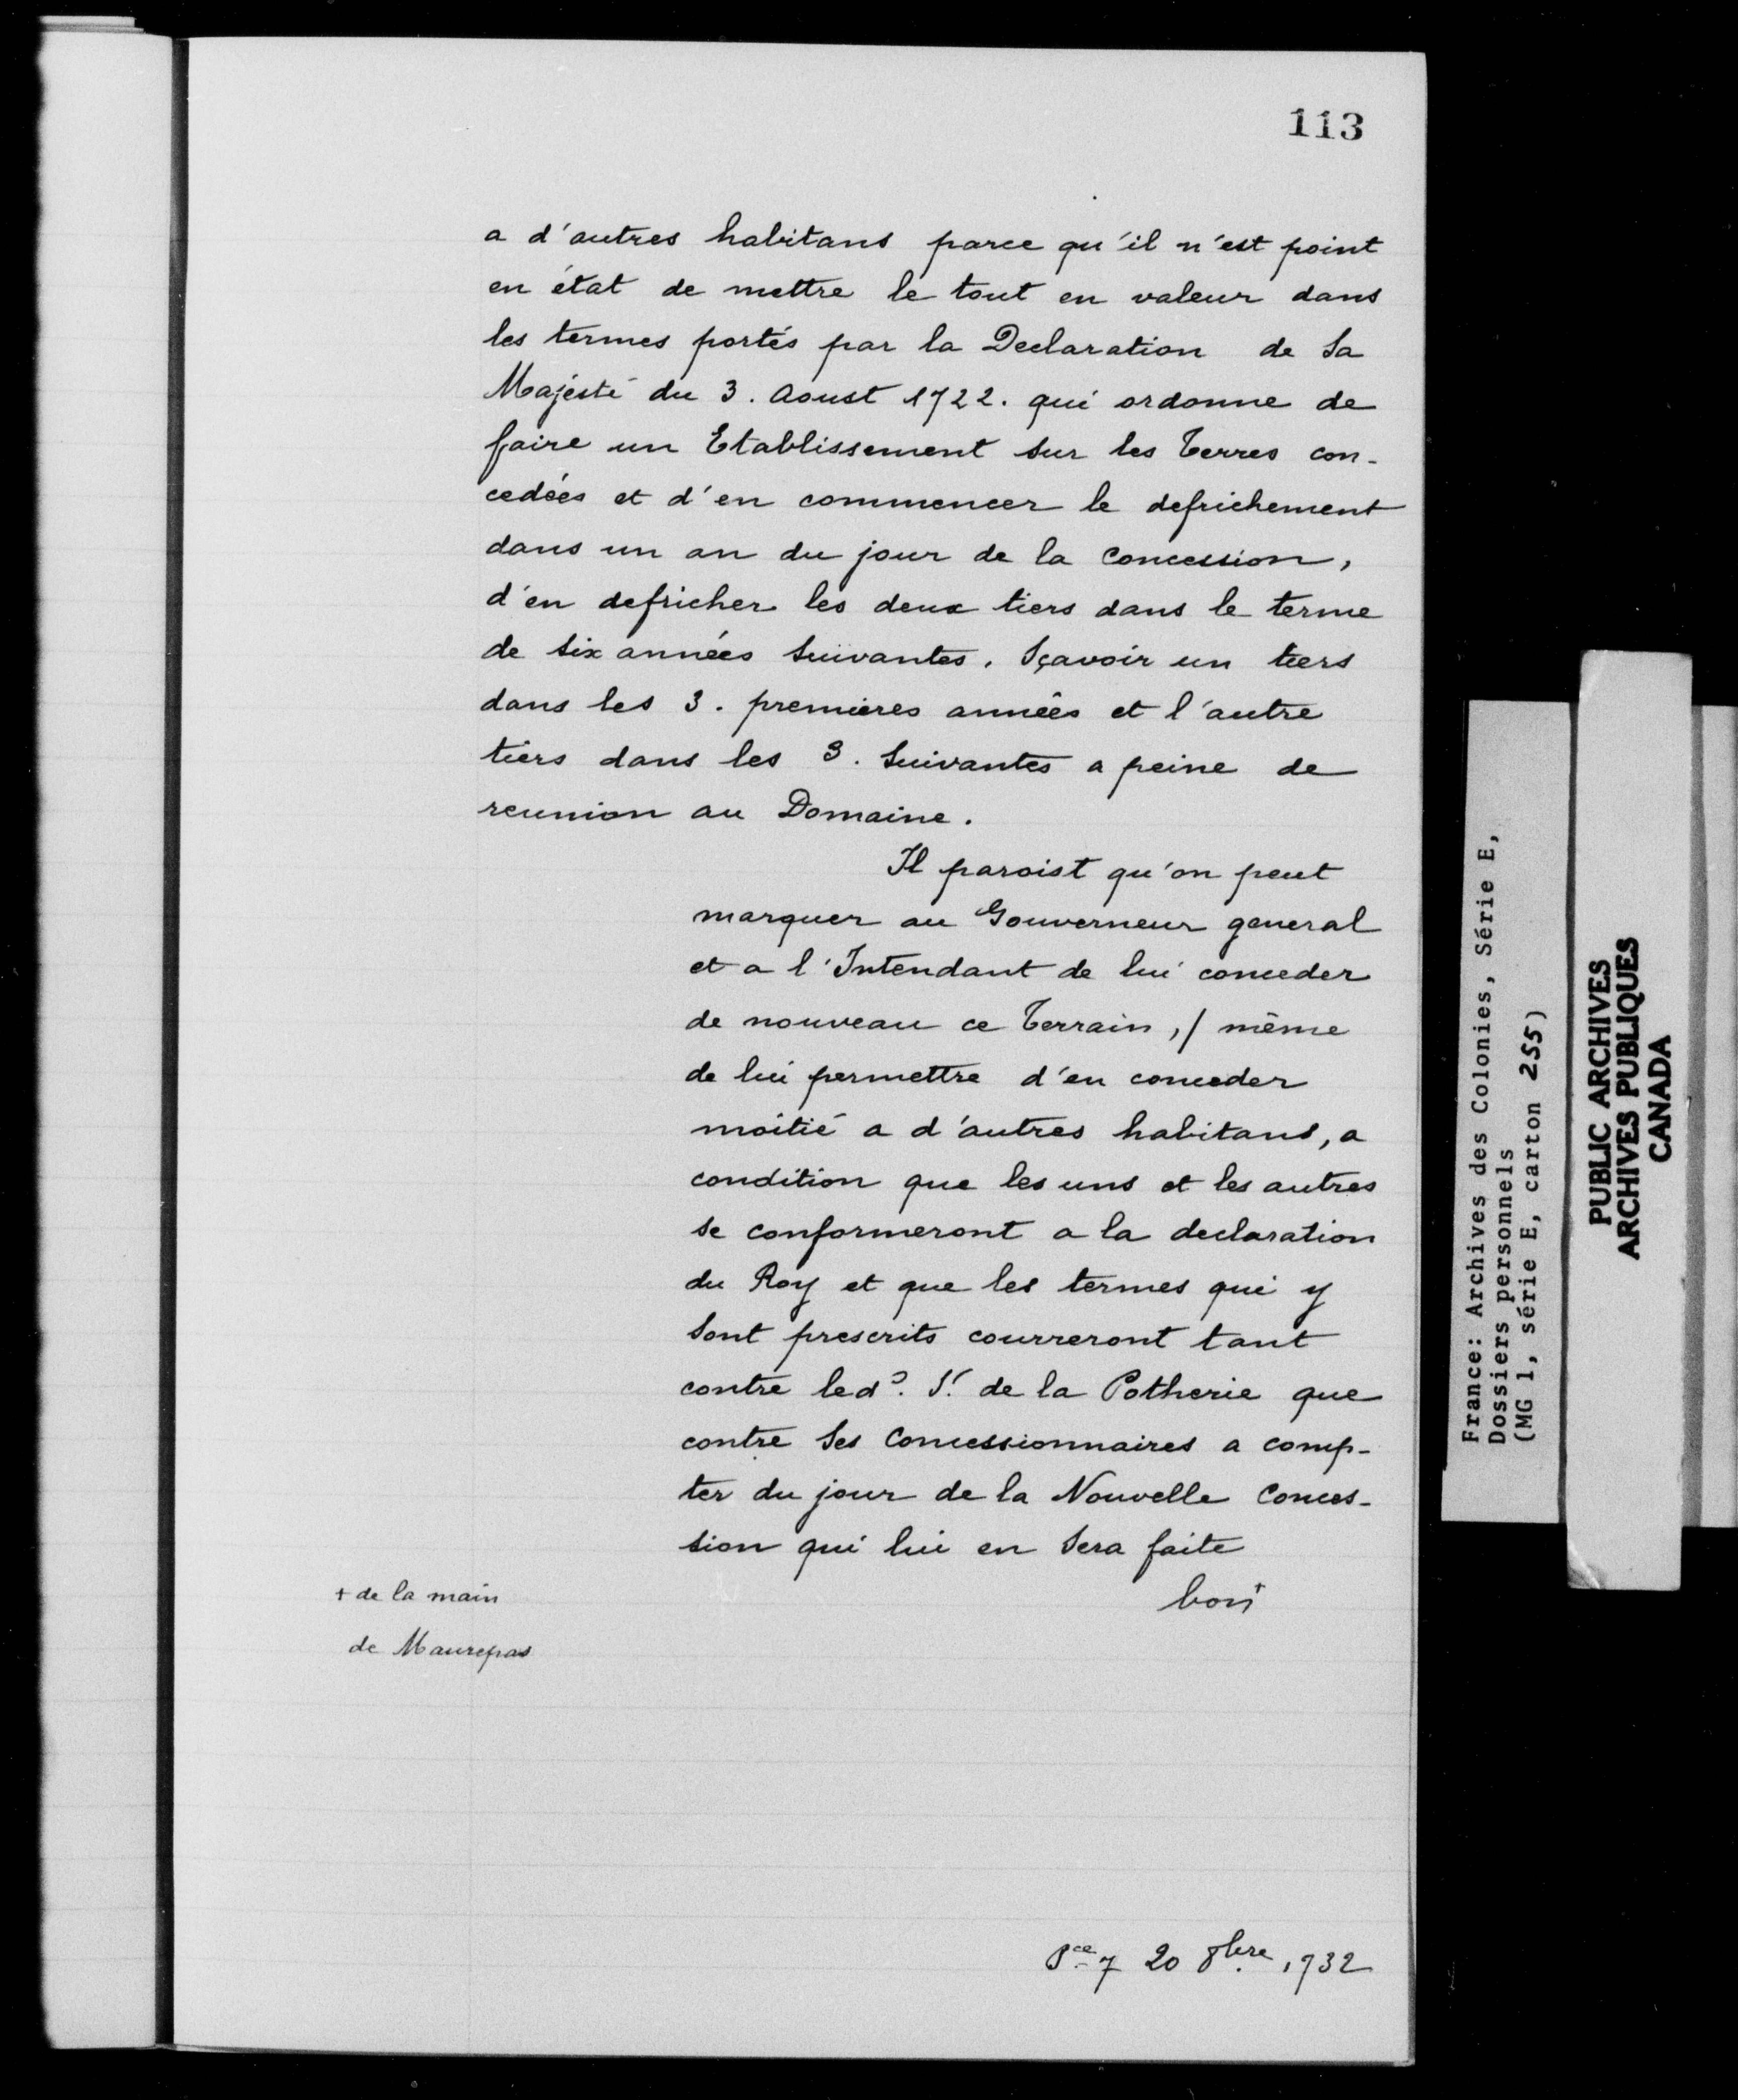 113
a d'autres habitans parce qu'il n'est point
en état de mettre le tout en valeur dans
les termes portés par la Declaration de Sa
Majesté du 3. Aoust 1722. qui ordonne de
faire un Etablissement sur les Terres con-
cedées et d'en commencer le defrichement
dans un an du jour de la Concession,
d'en defricher les deux tiers dans le terme
de six années suivantes. Sçavoir un tiers
dans les 3. premieres années et l'autre
tiers dans les 3. Suivantes a peine de
reunion au Domaine.
Il paroist qu'on peut
marquer au Gouverneur general
et a l'Intendant de lui conceder
de nouveau ce Terrain, / même
de lui permettre d'en conceder
moitié a d'autres habitans, a
condition que les uns et les autres
se conformeront a la declaration
du Roy et que les termes qui y
sont prescrits courreront tant
contre led?. Sr. de la Potherie que
contre ses Concessionnaires a comp-
ter du jour de la Nouvelle Conces-
sion qui lui en sera faite
bon+
+ de la main
de Maurepas
Pce 7 20 8bre. 1732
France: Archives des Colonies, Série E,
Dossiers personnels
(MG 1, série E, carton 255)
PUBLIC ARCHIVES
ARCHIVES PUBLIQUES
CANADA